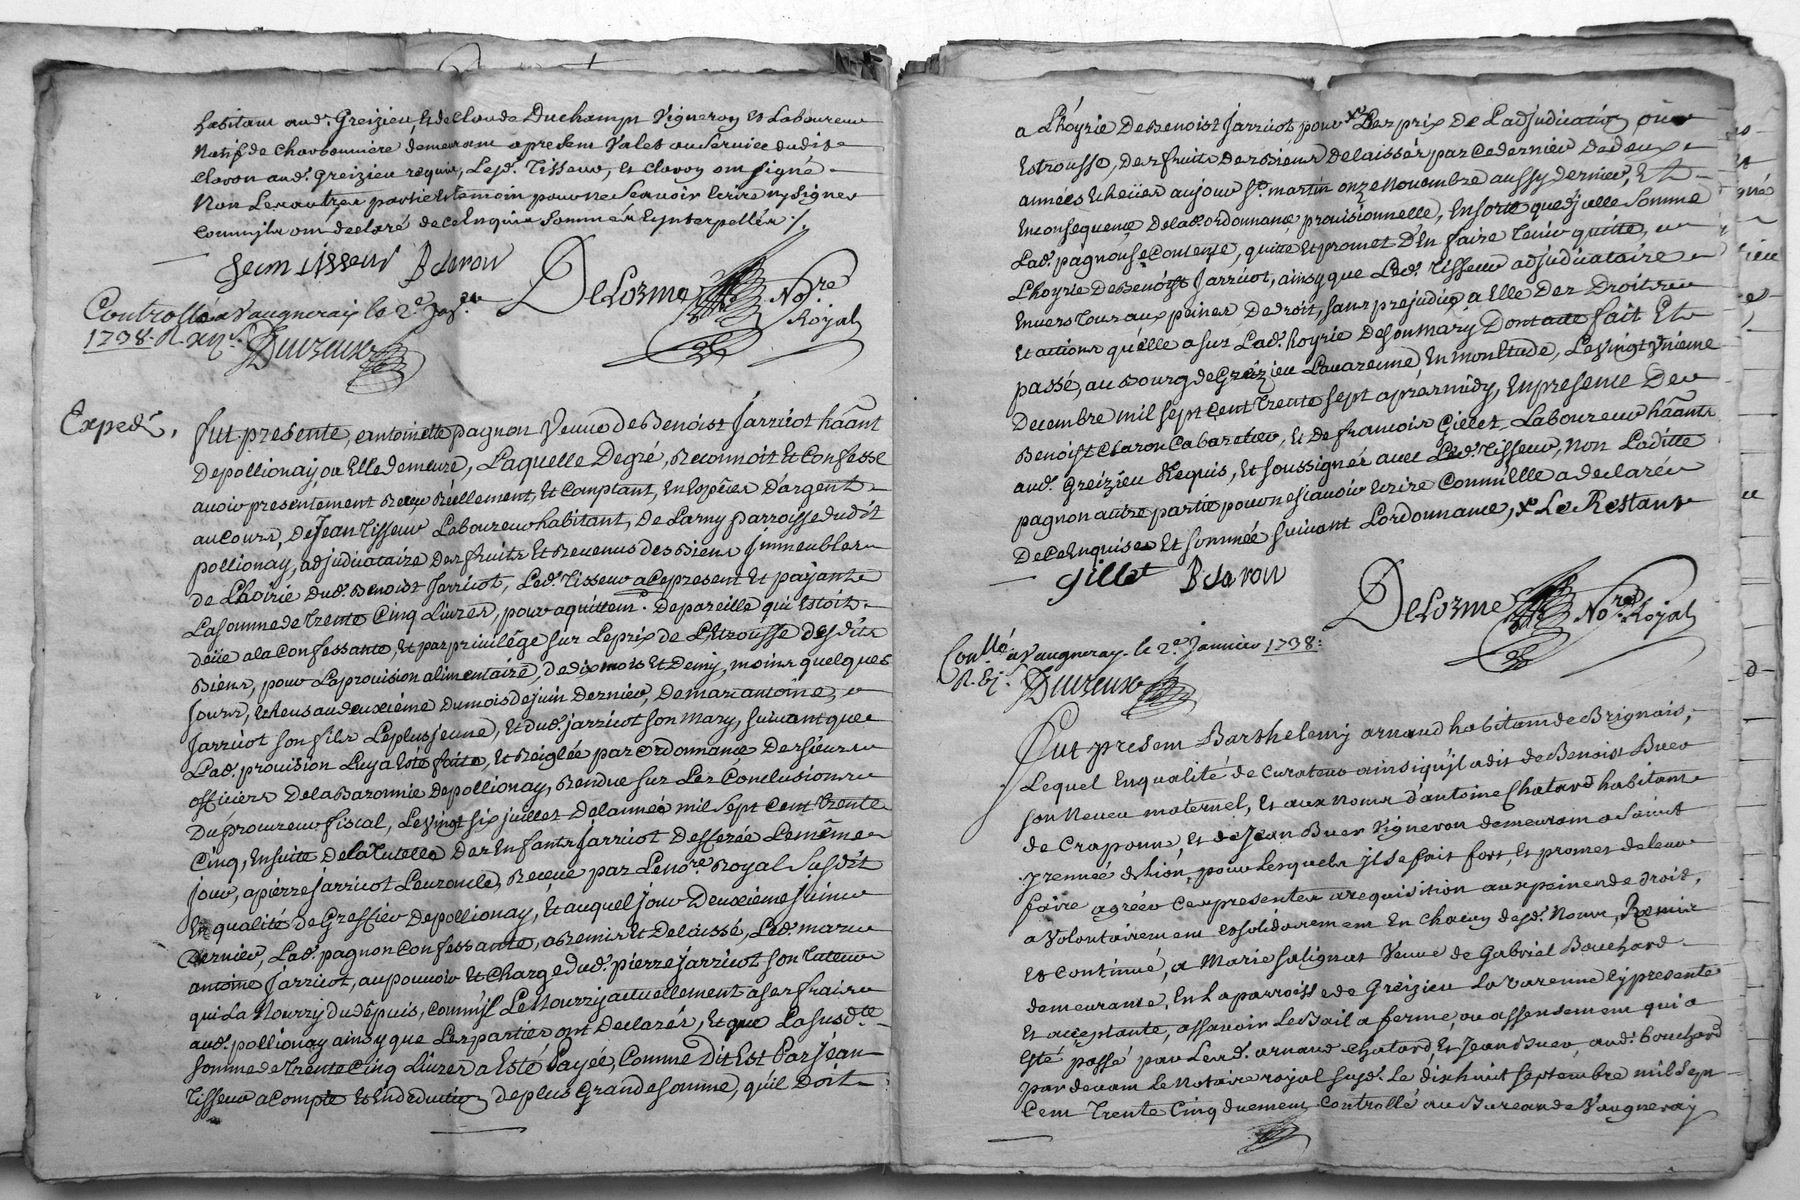 habitant aud. Greizieu, et de Claude Duchamp Vigneron et Laboureur
Natif de Charbonniere demeurant apresent Valet au Service dudit
Claron aud. Greizieu requis, Led. Tisseur, et Claron ont signé
Non Les autres parties et temoin pour ne scavoir Ecrire ny signer
comm'ils ont declaré de ce Enquis Sommés et jnterpellés ./.
Jean tisseur B claron
DeLorme No.re Royal
Controllé a Vaugneray le 2.e Ja.er
1738. R. xij s. Duvreux
Exped.é,
fut presente, antoinette pagnon Veuve de Benoist Jarricot hãant
De pollionay, ou Elle demeure, Laquelle De gré, Reconnoit Et Confesse
avoir presentement Receu Réellement, Et Comptant, En Espèces D'argent
au cours, De Jean Tisseur Laboureur habitant, De Larny parroisse dudit
pollionay, adjudicataire Des fruits Et Revenus des Biens Jmmeubles
de L'hoirie dud. Benoist Jarricot, Led. Tisseur a ce present Et payant
La somme de Trente Cinq Livres, pour aquittem.t De pareille qui Estoit
deüe a la Confessante, Et par privilége sur Le prix de L'Etrousse desdits
Biens, pour La provision alimentaire, de dix mois Et Demy, moins quelques
jours, Echeus au deuxiéme du mois de juin Dernier, De marc antoine
Jarricot son fils Le plus jeune, Et dud. jarricot son Mary, suivant que
Lad. provision Luy a Esté faite, Et Reiglée par ordonnance Des sieurs
officiers De la Baronnie De pollionay, Rendue sur Les Conclusions
Du procureur fiscal, Le vingt six juillet De l'année mil sept cent trente
Cinq, Ensuite De la Tutelle Des Enfants Jarricot Defferée Le même
jour, a pierre Jarricot Leur oncle, Receue par Le no.re Royal susdit
En qualité de Greffier De pollionay, Et auquel jour Deuxieme juin
Dernier, Lad. pagnon Confessante, a Remis Et Delaissé, Led. marc
antoine Jarricot, au pouvoir Et Charge Dud. pierre Jarricot son Tuteur
qui La Nourry du depuis, comm'jl Le Nourry actuellement a ses frais
aud. pollionay ainsy que Les parties ont Declarés, Et que La susd.te
somme de Trente Cinq Livres a Esté Payée, Comme Dit Est Par Jean
Tisseur a Compte Et En deduction de plus Grande somme, qu'il Doit
a L'hoyrie De Benoist Jarricot, pour x Les prix De L'adjudication ou
Estrousse, Des fruits Des Biens Delaissés par Ce dernier De deux
années Echeües aujour S.t martin onze Novembre aussy dernier, Et
En conséquence De lad. ordonnance provisionnelle, En sorte que d'jcelle Somme
Lad. pagnon se Contente, quitte Et promet D'En faire Tenir quitte,
L'hoyrie De Benoist Jarricot, ainsy que Led. Tisseur adjudicataire
Envers tous aux peines De droit, sans prejudice a Elle Des Droits
Et actions qu'elle a sur Lad. hoyrie De son mary Dont acte fait Et
passé, au Bourg de Greizieu Lavarenne, En mon Etude, Le Vingt Vnieme
Decembre mil sept Cent Trente sept apres midy, En presence De
Benoist Claron Cabaretier, Et De francois Gillet Laboureur hãants
aud. Greizieu Requis, Et soussignés avec Led. Tisseur, Non Laditte
pagnon autre partie pour ne sçavoir Ecrire Comm'Elle a declarée
De ce Enquise Et sommée suivant L'ordonnance, x Le Restant
Gillet B claron
DeLorme No.re Royal
Con.llé a Vaugneray le 2.e Janvier 1738:
Duvreux
Fut present Barthelemy arnaud habitant de Brignais,
Lequel En qualité de Curateur ainsi qu'jl a dit de Benoist Buer
son Neveu maternel, Et aux Noms d'antoine Chatard habitant
de Craponne, Et de Jean Buer Vigneron demeurant a Saint
jrennée de Lion, pour Lesquels jl se fait fort, Et promet de leur
faire agréer Ces presentes a requisition aux peines de droit,
a Volontairement Et solidairement En Chacun desd. Noms, Remis
Et Continué, a Marie salignat Veuve de Gabriel Bouchard
demeurante, En La parroisse de Greizieu La Varenne Cy presente
Et acceptante, assavoir Le Bail a ferme, ou assensement qui a
Esté passé par Lesd. arnaud chatard, Et Jean Buer, aud. bouchard
par devant Le Notaire royal susd. Le dixhuit septembre mil sept
Cent Trente Cinq duement Controllé au Bureau de Vaugneray